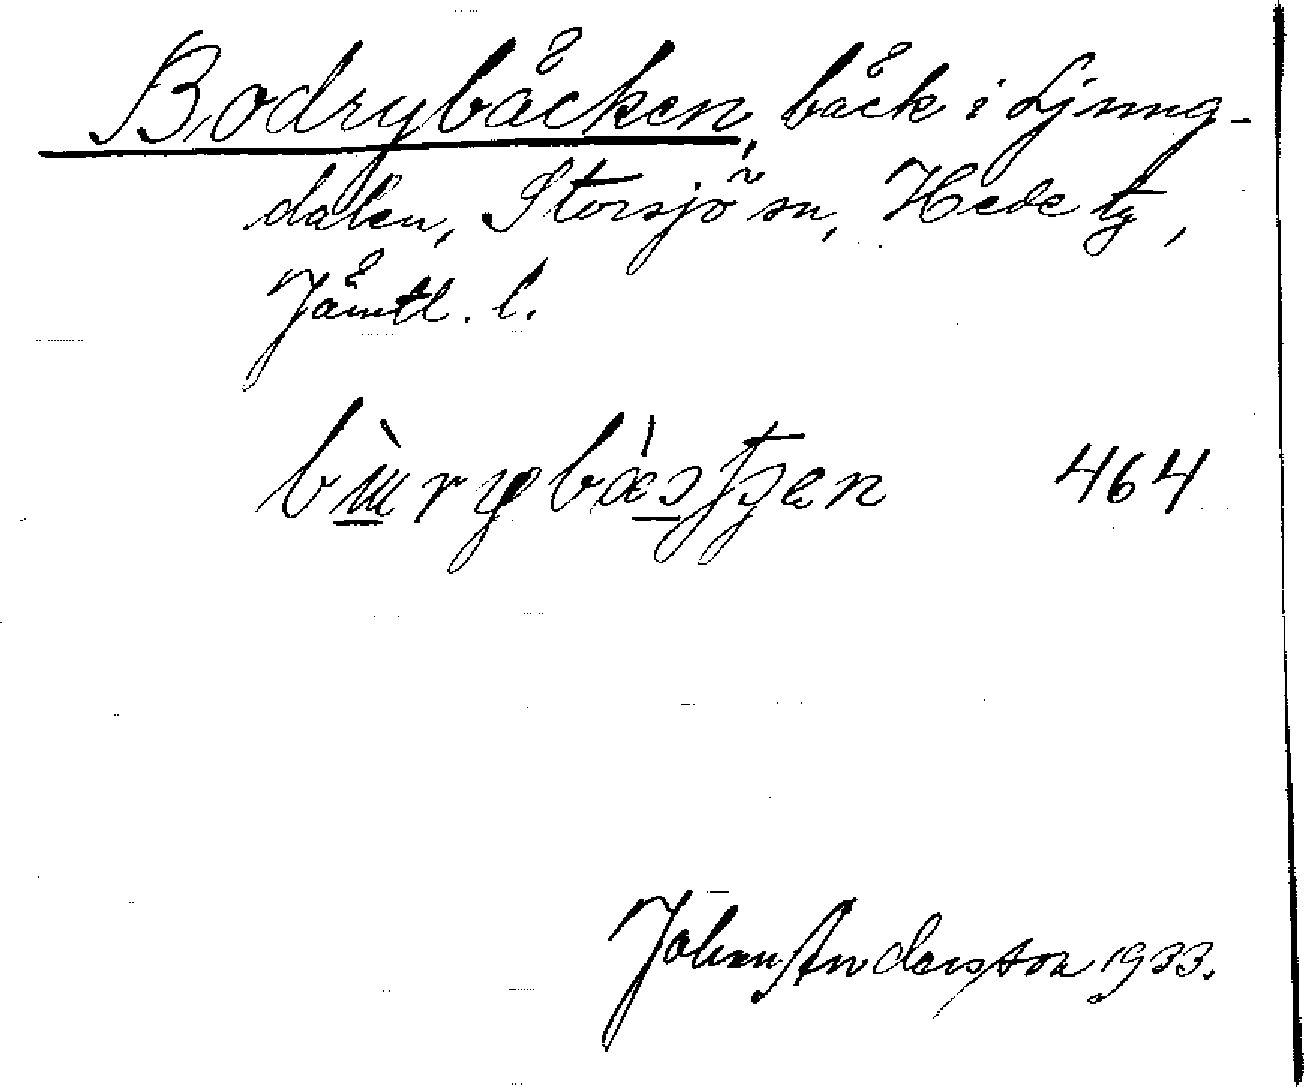 Bodrybäcken, bäck i Ljung-
dalen, Storsjö sn, Hede tg,
Jämtl. l.
464
Johan Andersson 1933.